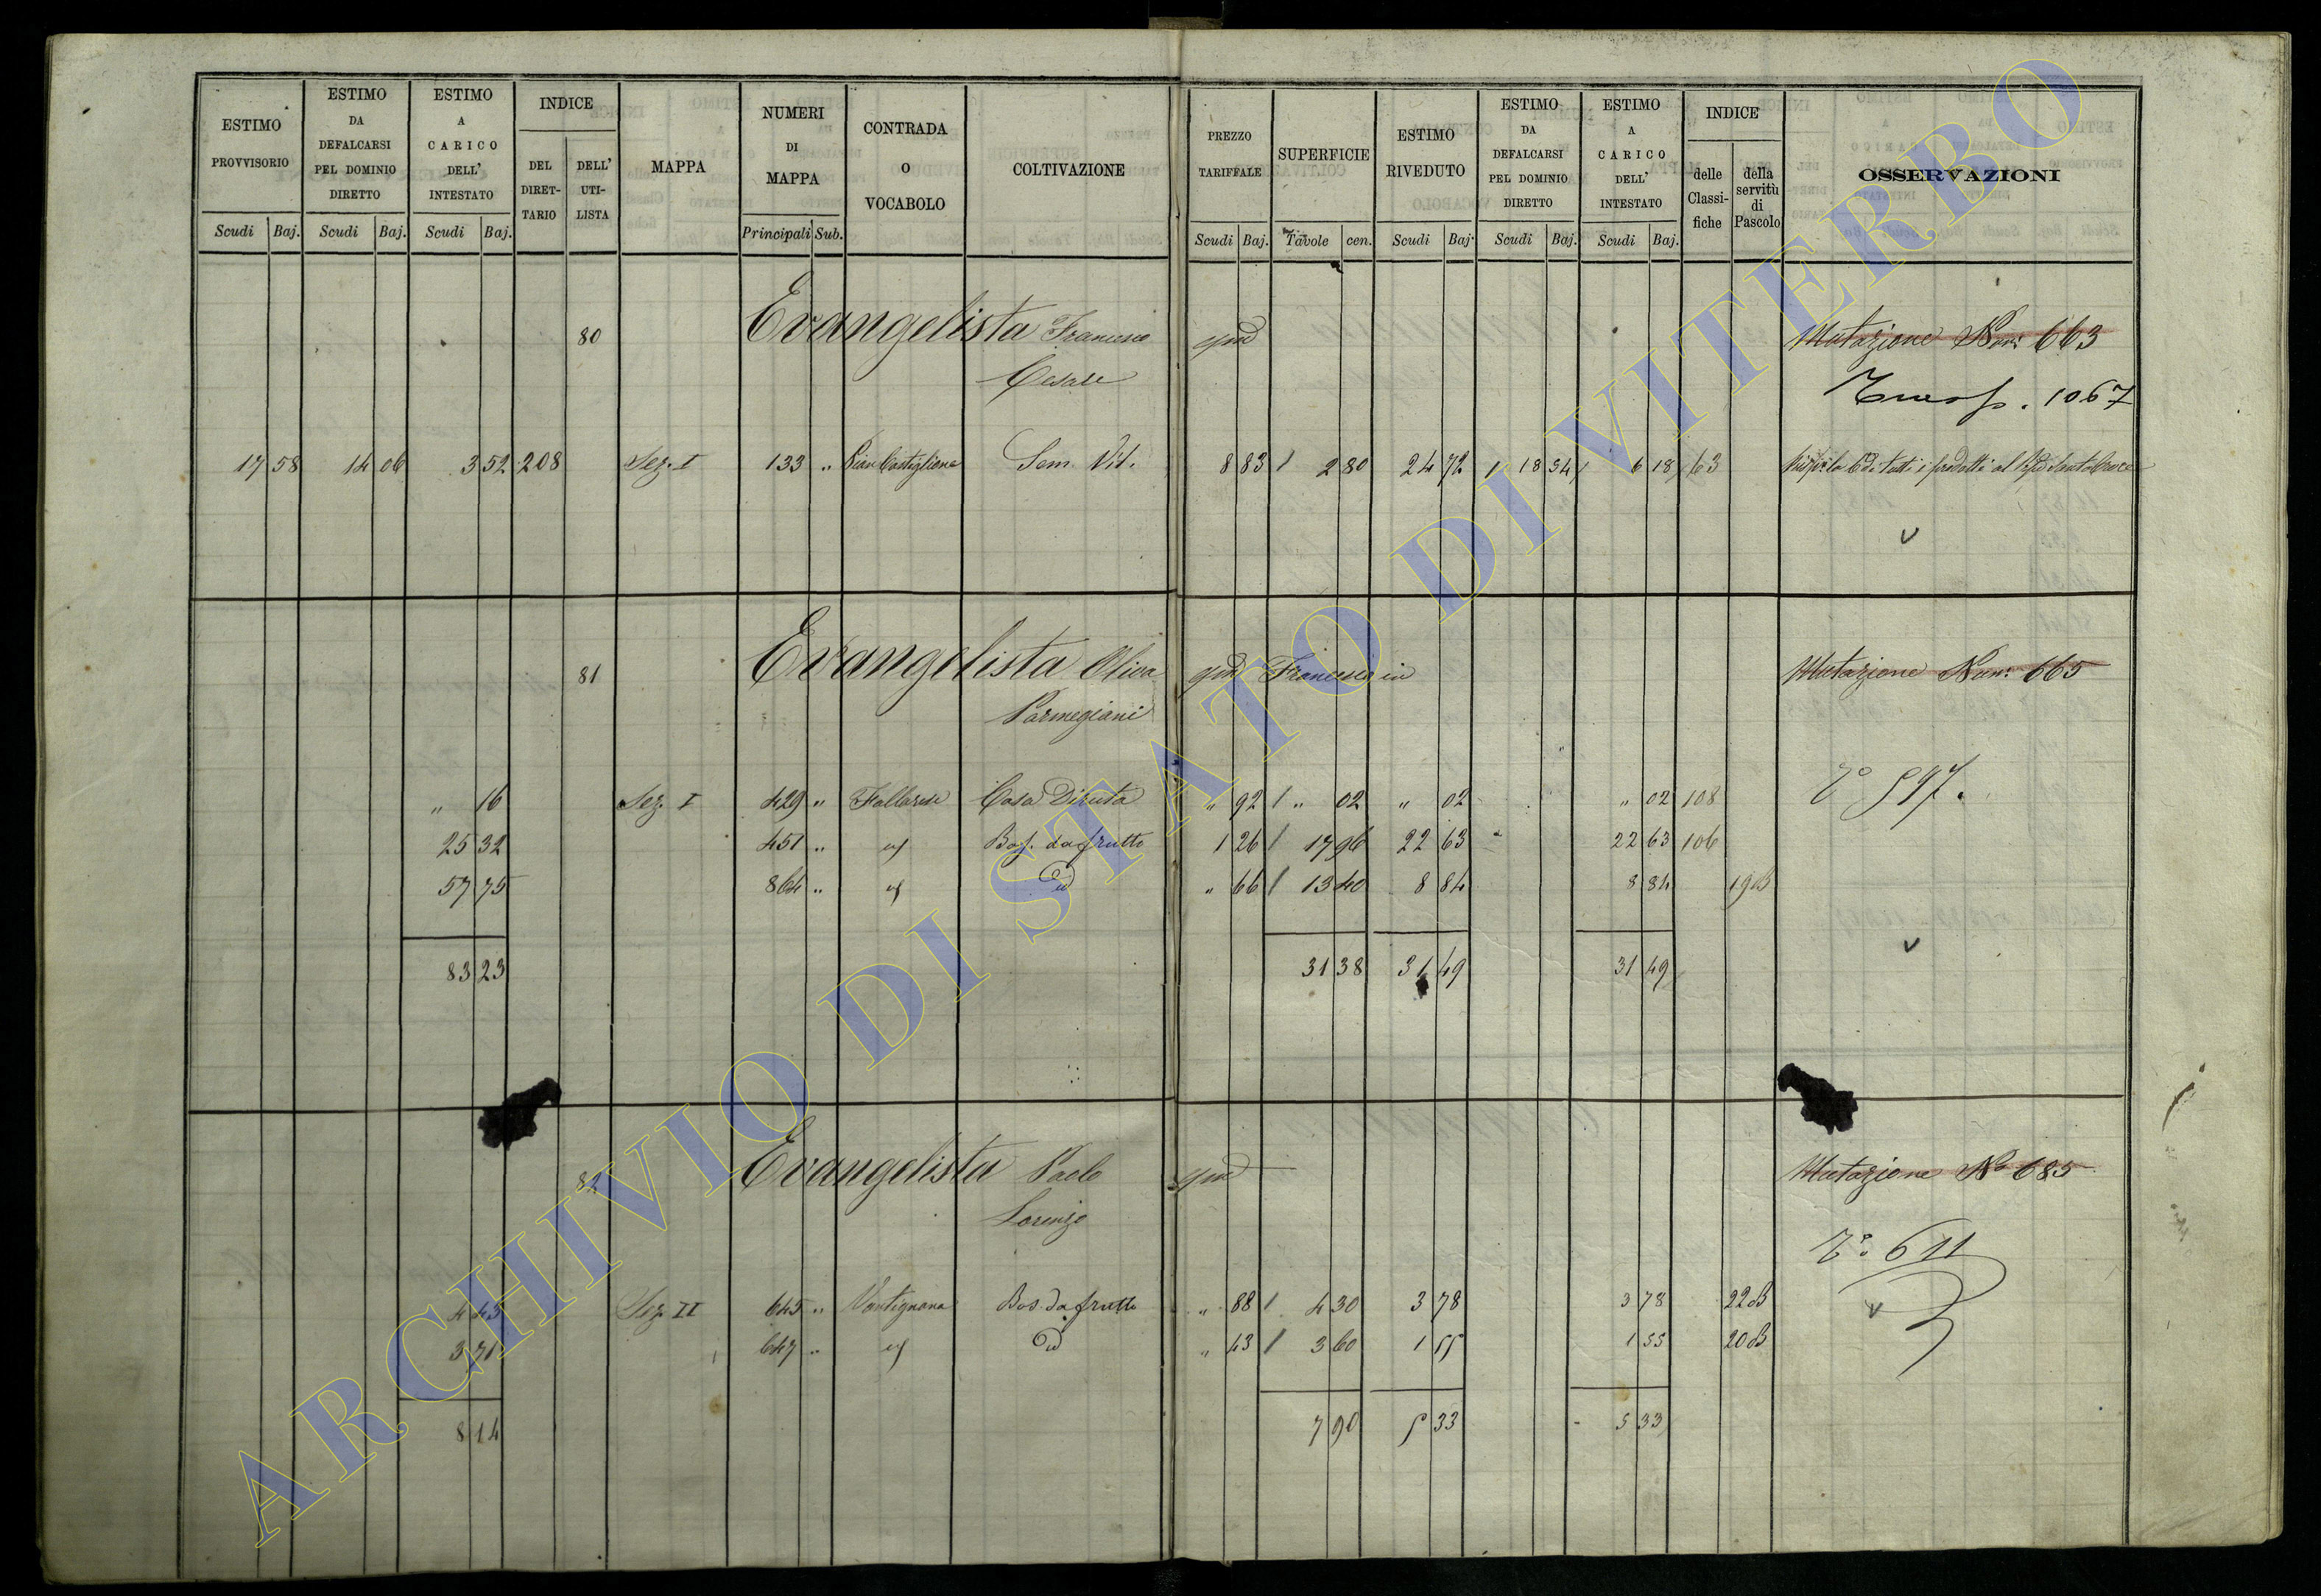 ESTIMO PROVVISORIO
ESTIMO DA DEFALCARSI PEL DOMINIO DIRETTO
ESTIMO A CARICO DELL' INTESTATO
INDICE
DEL DIRET-TARIO
DELL' UTI-LISTA
MAPPA
NUMERI DI MAPPA
CONTRADA O VOCABOLO
COLTIVAZIONE
PREZZO TARIFFALE
SUPERFICIE
ESTIMO RIVEDUTO
ESTIMO DA DEFALCARSI PEL DOMINIO DIRETTO
ESTIMO A CARICO DELL' INTESTATO
INDICE
delle Classi-fiche
della servitù di Pascolo
OSSERVAZIONI
Scudi Baj. Scudi Baj. Scudi Baj. Principali Sub. Scudi Baj. Tavole cen. Scudi Baj. Scudi Baj. Scudi Baj.
80 Evangelista Francesco qm Mutazione Num 663
Cesare
1067
17 58 14 06 3 52 208 Sez. I 133 " Pian Castiglione Sem. Vit. 8 83 / 2 80 24 72 18 54 6 18 63
v
81 Evangelista Oliva qm Francesco in Mutazione Num: 665
Parmegiani
" 16 Sez. I 429 " Fallarese Casa Diruta " 92 / " 02 " 02 " 02 108 597.
25 32 451 " Bos. da frutto 1 26 / 17 96 22 63 22 63 106
57 75 864 " " 66 / 13 40 8 84 8 84 19B
83 23 31 38 31 49 31 49
v
82 Evangelista Paolo qm Mutazione No 685
Lorenzo
611
4 43 Sez. II 645 " Vantignana Bos. da frutto " 88 / 4 30 3 78 3 78 22B v
3 71 647 " " 43 / 3 60 1 55 1 55 20B
8 14 7 90 5 33 5 33
ARCHIVIO DI STATO DI VITERBO